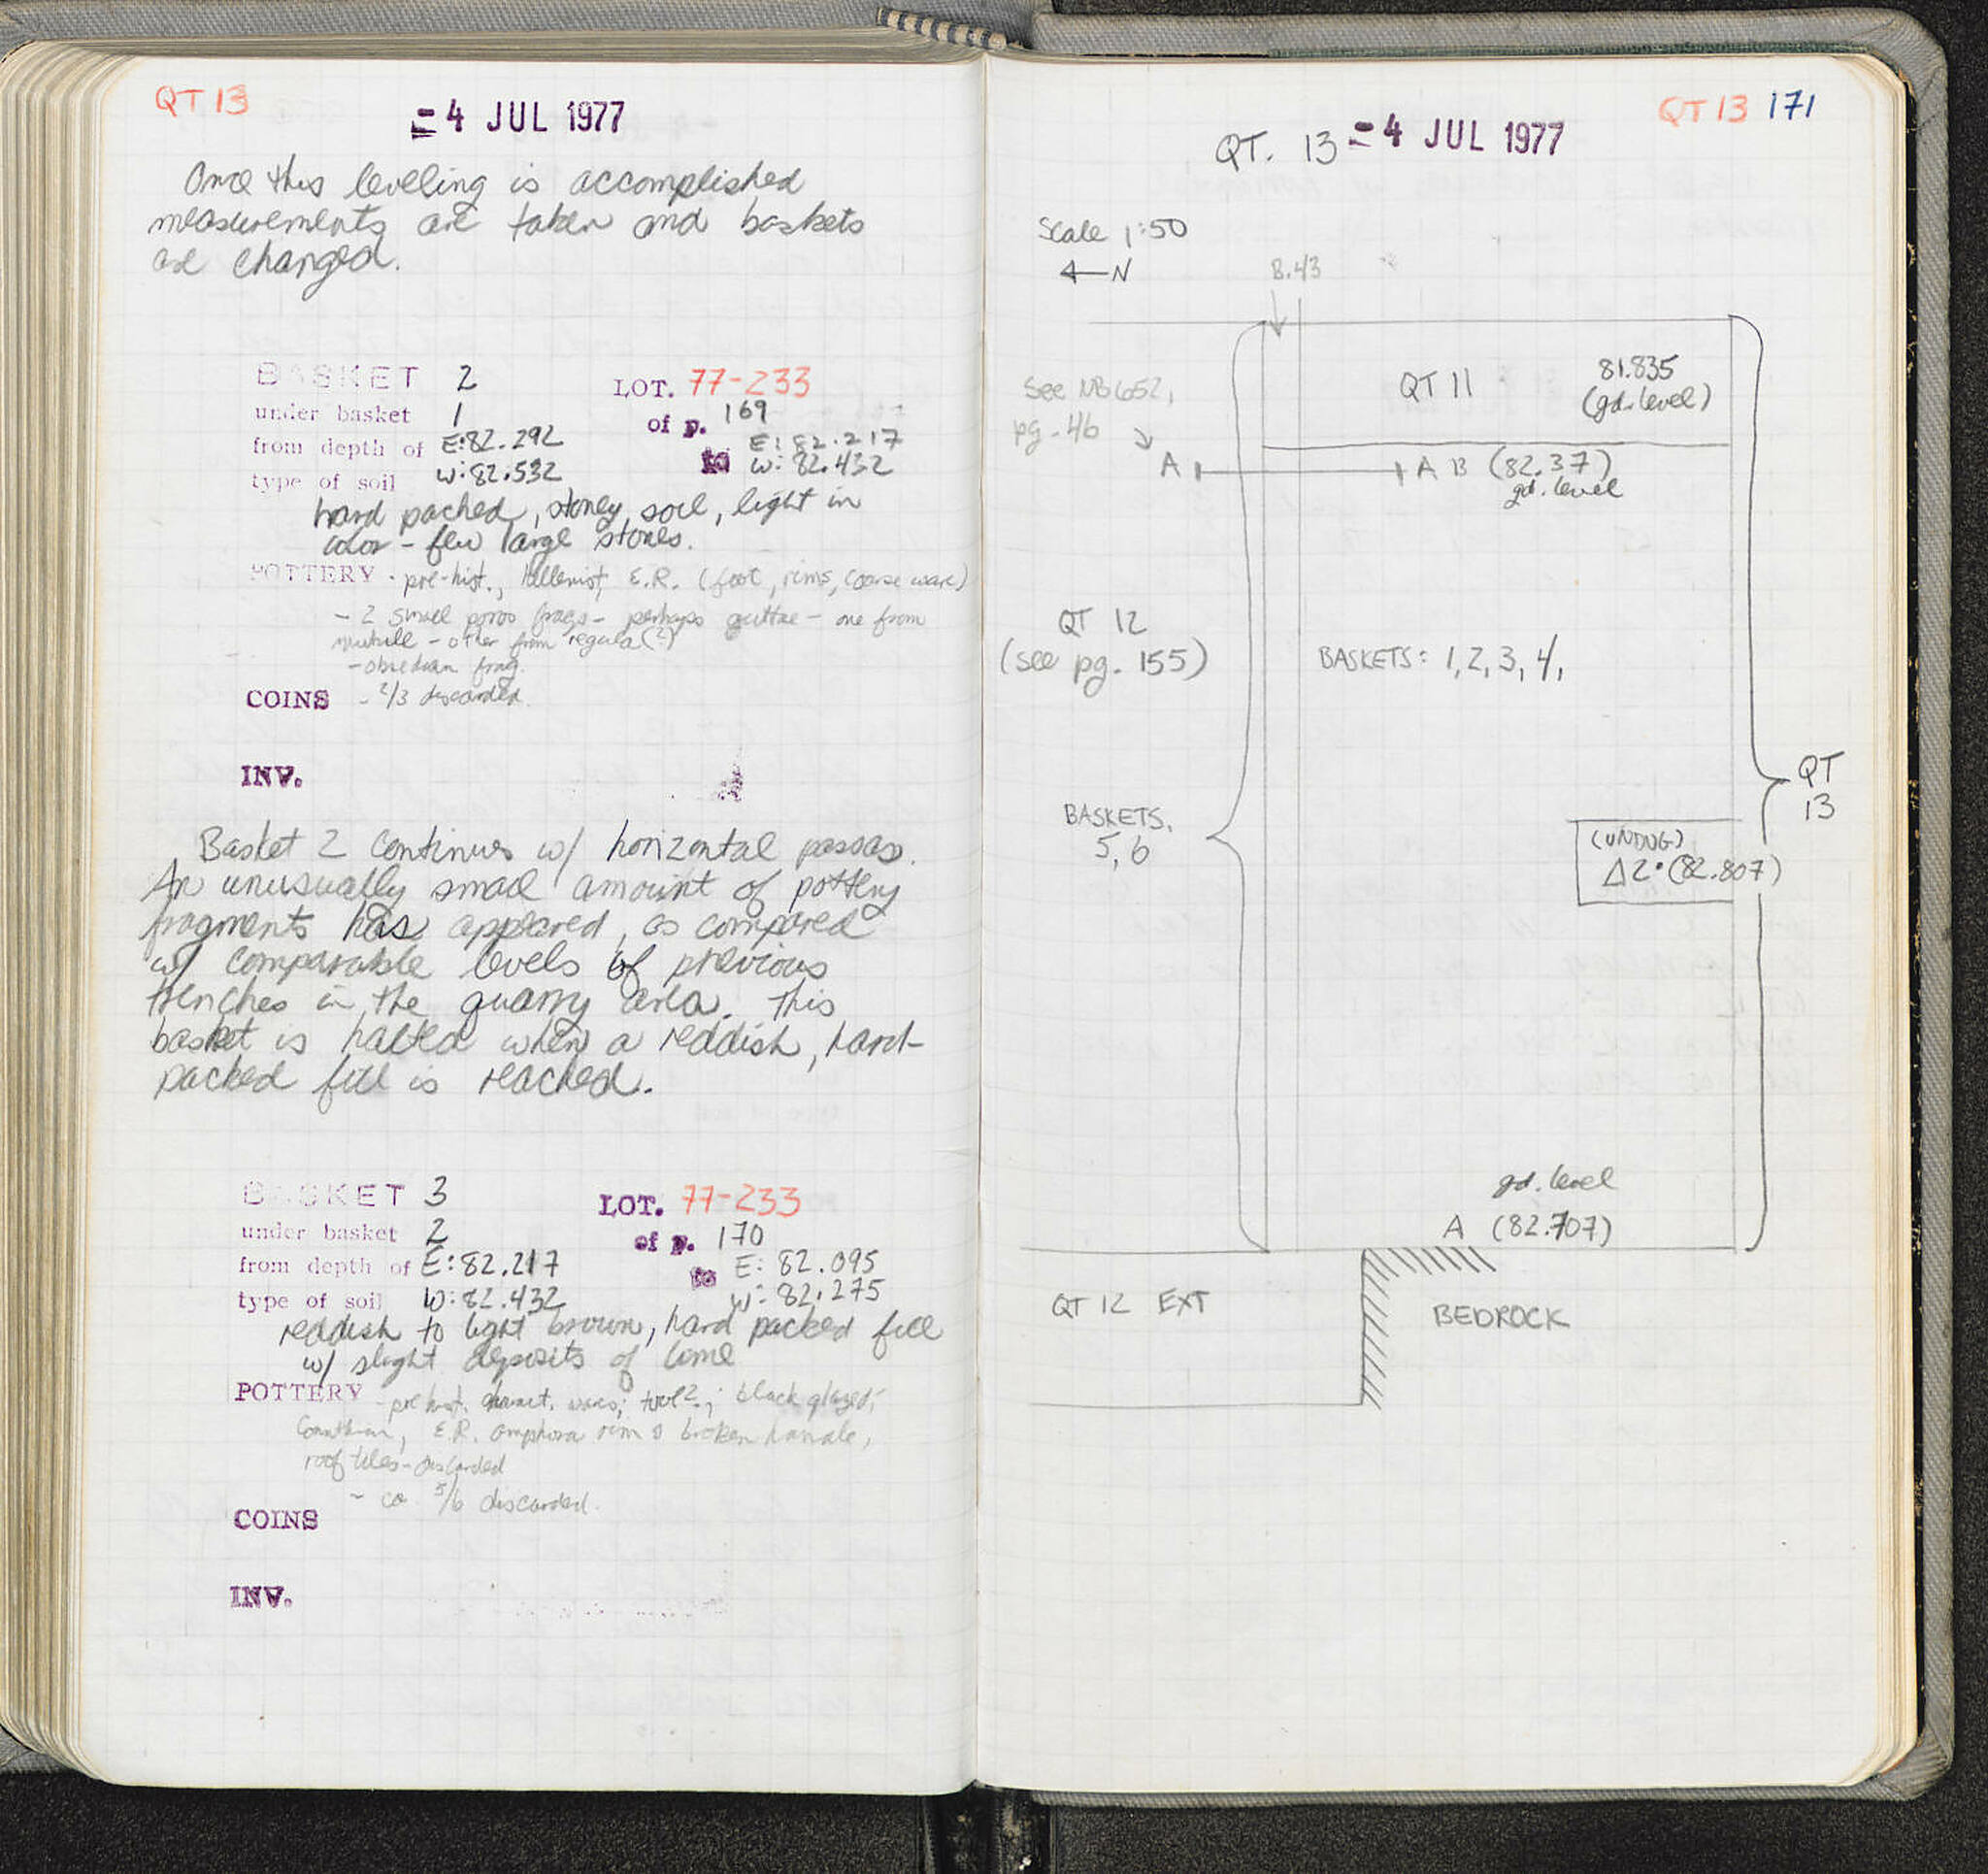 QT 13
-4 JUL 1977
Once this leveling is accomplished
measurements are taken and baskets
are changed.
BASKET 2 LOT. 77-233
under basket 1 of p. 169
from depth of E:82.292 to E: 82.217
W:82.532 W: 82.432
type of soil
hard packed, stoney soil, light in
color - few large stones.
POTTERY - pre-hist., Hellenist, E.R. (foot, rims, coarse ware)
- 2 small poros frags - perhaps guttae - one from
mutule - other from regula(?)
- obsedian frag.
- 2/3 discarded
COINS
INV.
Basket 2 continues w/ horizontal passes.
An unusually small amount of pottery
fragments has appeared, as compared
w/ comparable levels of previous
trenches in the quarry area. This
basket is halted when a reddish, hard-
packed fill is reached.
BASKET 3 LOT. 77-233
under basket 2 of p. 170
from depth of E:82.217 to E: 82.095
type of soil W:82.432 W: 82.275
reddish to light brown, hard packed fill
w/ slight deposits of lime
POTTERY - pre hist. wares; black glazed;
Corinthian, E.R. amphora rim & broken handle,
roof tiles - discarded
- ca 5/6 discarded.
COINS
INV.
QT 13 171
QT. 13 -4 JUL 1977
Scale 1:50
N
B.43
QT 11
81.835
(gd. level)
See NB 652,
pg. 46
A A B (82.37)
gd. level
QT 12
(see pg. 155)
BASKETS: 1, 2, 3, 4,
QT
13
BASKETS,
5, 6
(UNDUG)
Δ2·(82.807)
gd. level
A (82.707)
QT 12 EXT
BEDROCK